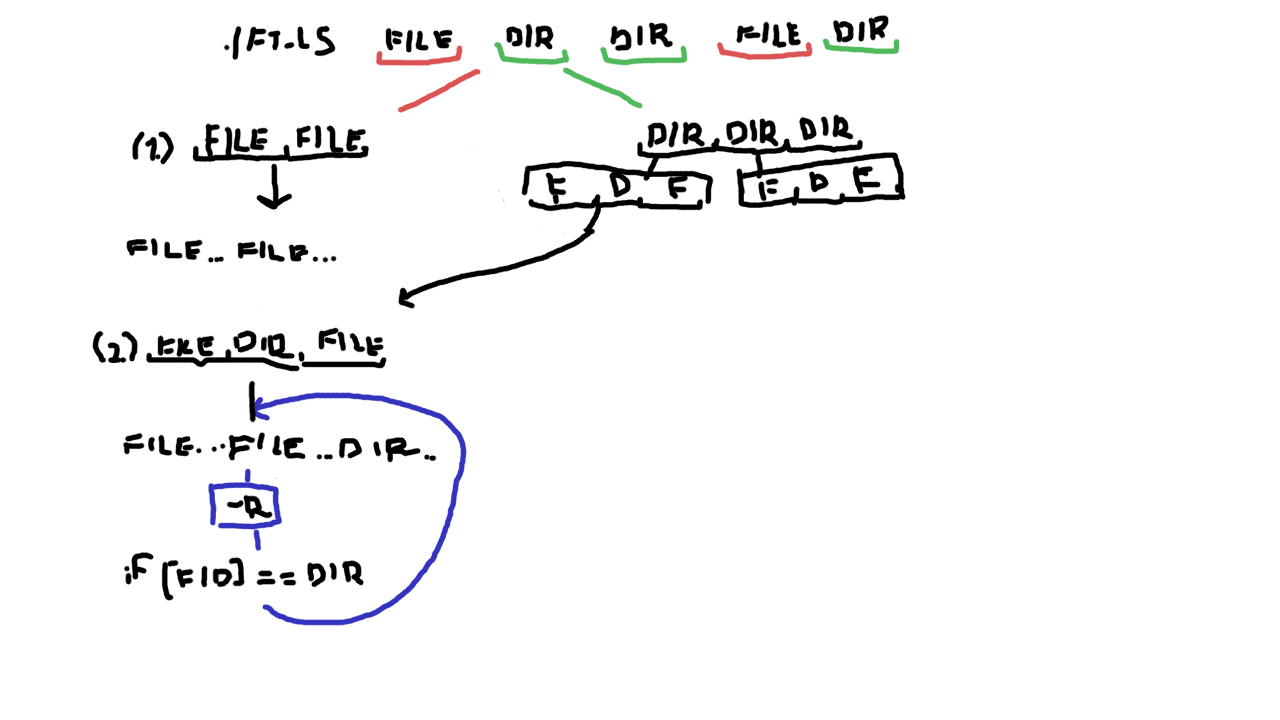 ./FT_LS FILE DIR DIR FILE DIR
(1) FILE FILE
DIR DIR DIR
F D F F D F
FILE.. FILE...
(2) FILE DIR FILE
FILE...FILE...DIR..
-R
iF [F|D] == DIR